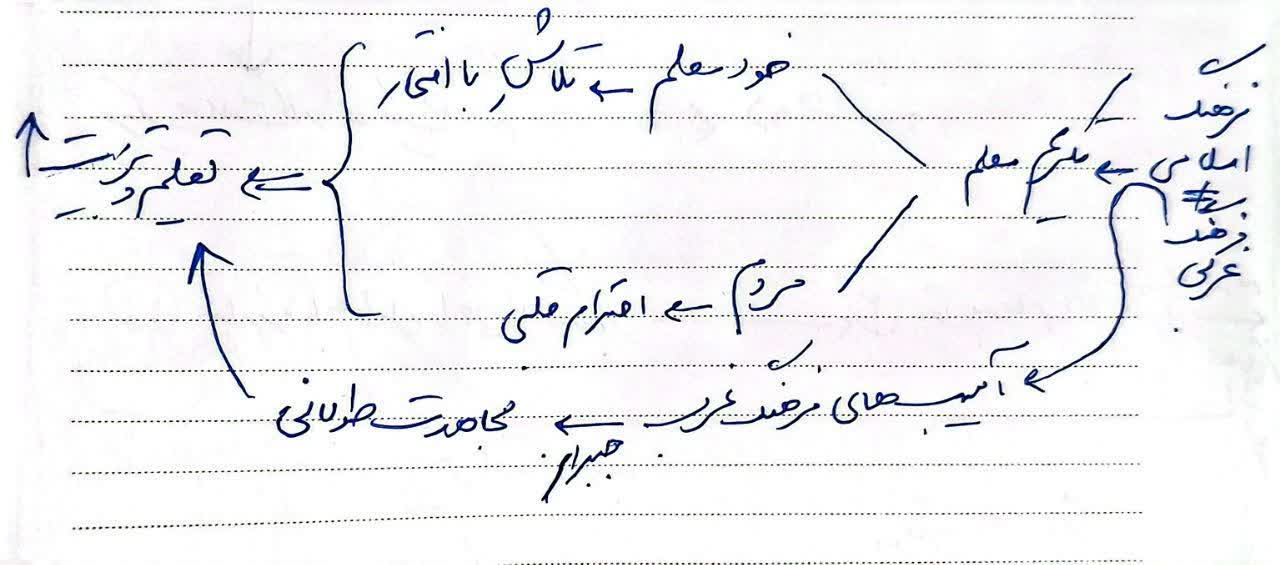 فرهنگ
اسلامی ← تکریم معلم
≠
فرهنگ
غربی
خود معلم ← تلاشِ با افتخار
مردم ← احترام قلبی
← تعلیم و تربیت ↑
آسیب‌های فرهنگ غرب ← مجاهدت طولانی
جبران